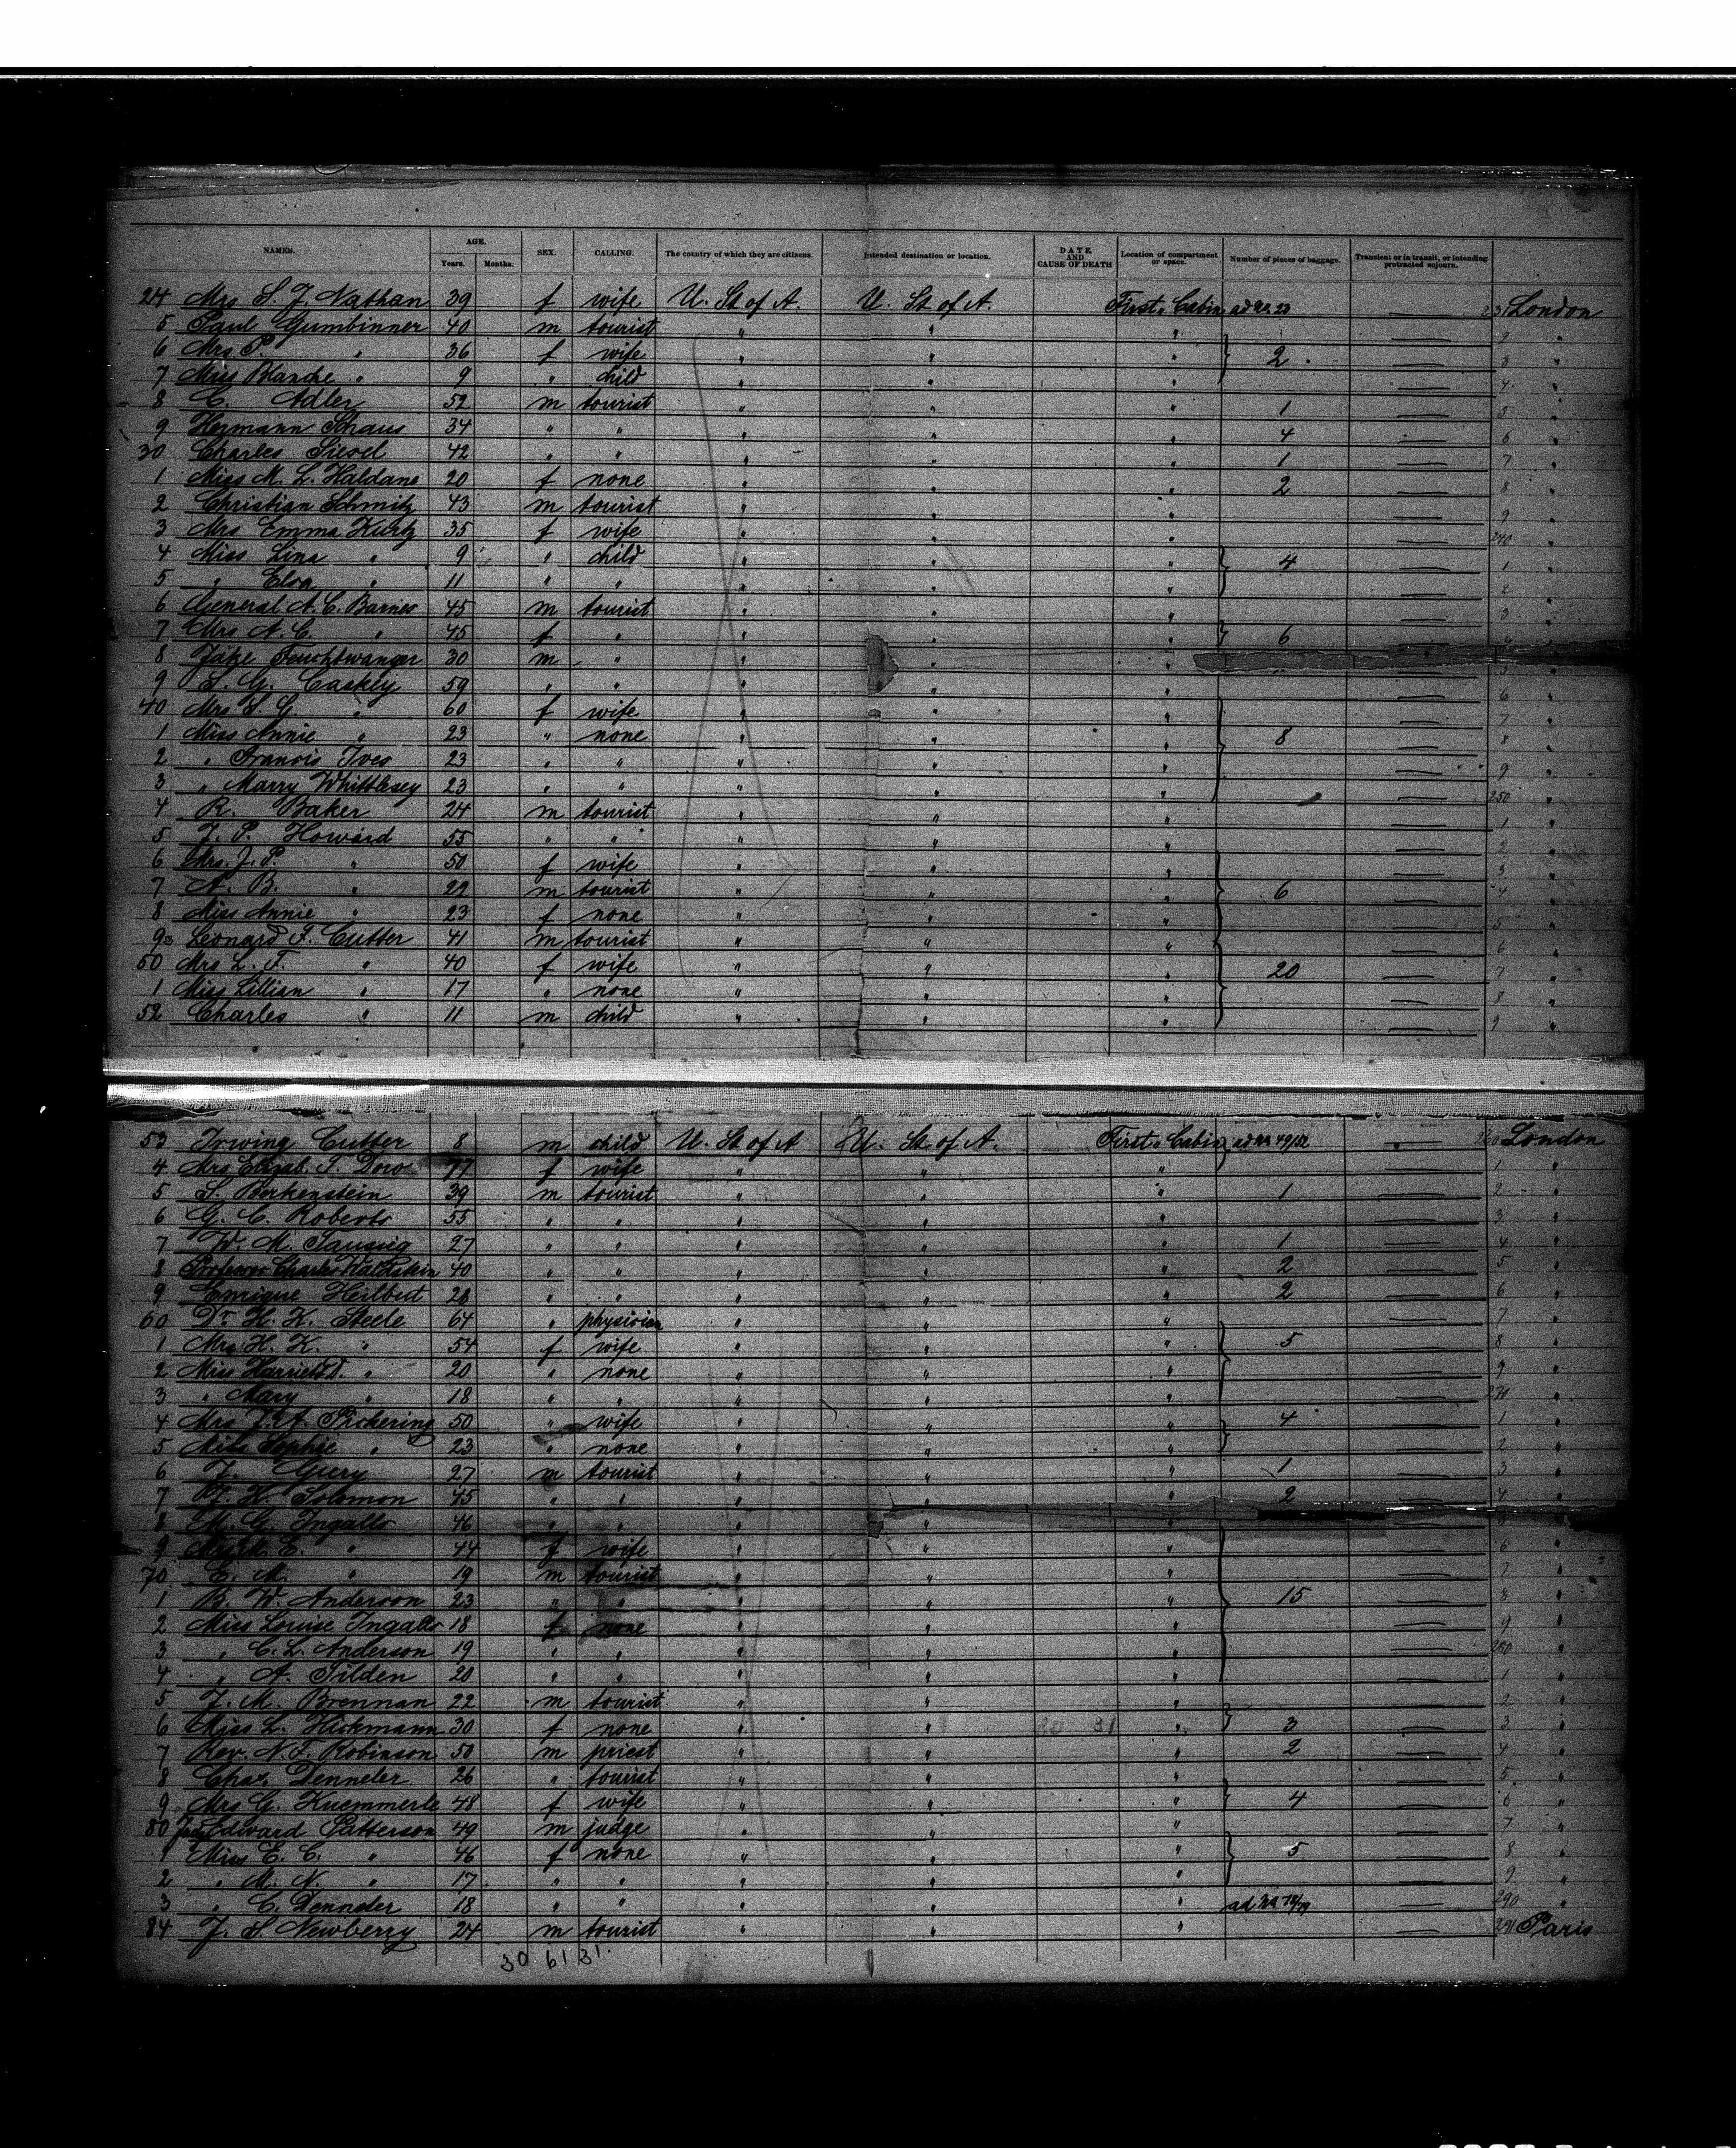 NAMES. AGE. Years. Months. SEX. CALLING. The country of which they are citizens. Intended destination or location. DATE AND CAUSE OF DEATH Location of compartment or space. Number of pieces of baggage. Transient or in transit, or intending protracted sojourn.
24 Mrs S. J. Nathan 39 f wife U. St of A. U. St of A. First Cabin ad No 23 — 231 London
5 Paul Gumbinner 40 m tourist " " " — 2 "
6 Mrs P. " 36 f wife " " " 2 — 3 "
7 Miss Blanche " 9 " child " " " — 4 "
8 C. Adler 52 m tourist " " " 1 — 5 "
9 Hermann Schaus 34 " " " " " 4 — 6 "
30 Charles Siesel 42 " " " " " 1 — 7 "
1 Miss M. L. Haldane 20 f none " " " 2 — 8 "
2 Christian Schmitz 43 m tourist " " " — 9 "
3 Mrs Emma Kurtz 35 f wife " " " — 240 "
4 Miss Lina " 9 " child " " " 4 — 1 "
5 " Elsa " 11 " " " " " — 2 "
6 General A. C. Barnes 45 m tourist " " " — 3 "
7 Mrs A. C. " 45 f " " " " 6 — 4 "
8 Jake Feuchtwanger 30 m " " " " — 5 "
9 S. G. Caskey 59 " " " " " — 6 "
40 Mrs S. G. " 60 f wife " " " — 7 "
1 Miss Annie " 23 " none " " " 8 — 8 "
2 " Francis Ives 23 " " " " " — 9 "
3 " Marry Whittlesey 23 " " " " " — 250 "
4 R. Baker 24 m tourist " " " — 1 "
5 J. P. Howard 55 " " " " " — 2 "
6 Mrs. J. P. " 50 f wife " " " — 3 "
7 A. B. " 22 m tourist " " " 6 — 4 "
8 Miss Annie " 23 f none " " " — 5 "
9 Leonard F. Cutter 41 m tourist " " " — 6 "
50 Mrs L. F. " 40 f wife " " " 20 — 7 "
1 Miss Lillian " 17 " none " " " — 8 "
52 Charles " 11 m child " " " — 9 "
53 Irwing Cutter 8 m child U. St of A U. St of A. First Cabin ad No 49/52 — 260 London
4 Mrs Elizab. T. Dow 77 f wife " " " — 1 "
5 S. Borkenstein 39 m tourist " " " 1 — 2 "
6 G. C. Roberts 55 " " " " " — 3 "
7 W. M. Taussig 27 " " " " " 1 — 4 "
8 Professor Charles Waldstein 40 " " " " " 2 — 5 "
9 Enrique Heilbut 28 " " " " " 2 — 6 "
60 Dr H. K. Steele 64 " physician " " " — 7 "
1 Mrs H. K. " 54 f wife " " " 5 — 8 "
2 Miss Harriett D. " 20 " none " " " — 9 "
3 " Mary " 18 " " " " " — 270 "
4 Mrs J. A. Pickering 50 " wife " " " 4 — 1 "
5 Miss Sophie " 23 " none " " " — 2 "
6 J. Guery 27 m tourist " " " 1 — 3 "
7 H. Solomon 45 " " " " " 2 — 4 "
8 M. G. Ingalls 46 " " " " " — 5 "
9 Mrs M. E. " 44 f wife " " " — 6 "
70 E. M. " 19 m tourist " " " — 7 "
1 B. W. Anderson 23 " " " " " 15 — 8 "
2 Miss Louise Ingalls 18 f none " " " — 9 "
3 " C. L. Anderson 19 " " " " " — 280 "
4 " A. Tilden 20 " " " " " — 1 "
5 J. M. Brennan 22 m tourist " " " — 2 "
6 Miss L. Hickmann 30 f none " " " 3 — 3 "
7 Rev. N. F. Robinson 50 m priest " " " 2 — 4 "
8 Chas. Denneler 26 " tourist " " " — 5 "
9 Mrs G. Kuemmerle 48 f wife " " " 4 — 6 "
80 Edward Patterson 49 m judge " " " — 7 "
1 Miss E. C. " 46 f none " " " 5 — 8 "
2 " M. N. " 17 " " " " " — 9 "
3 " C. Denneler 18 " " " " " ad No 78/79 — 290 "
84 J. S. Newberry 24 m tourist " " " — 291 Paris
30 61 31.